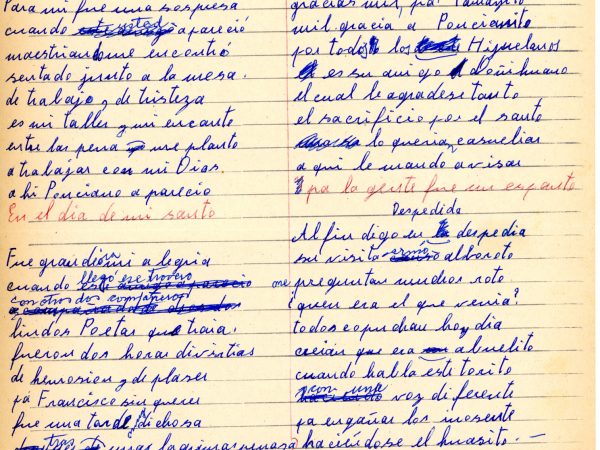 Para mi fue una sorpresa
cuando usted apareció
maestrian me encontró
sentado junto a la mesa.
de trabajo y de tristeza
es mi taller y mi encanto
entre las pena me planto
a trabajar con mi Dias.
ahi Ponciano aparecio
En el dia de mi santo
Fue grandiora mi alegria
cuando llegó ese trovero
con otros dos compañeros
lindos Poetas que traia.
fueron dos horas divirtias
de hemosion y de plaser
pa Francisco sin querer
fue una tarde dichosa
tras unas lagrimas penosa
gracias mil, pa
mil gracia a Poncianito
por todos los Higuelanos
es su amigo Doñihuano
el cual le agradese tanto
el sacrificio por el santo
lo queria
a qui le mando avisar
pa la gente fue un espanto
Despedida
Al fin digo en la despedia
su visita armó alboroto
me preguntan muchos roto
¿quen era el que venia?
todos copuchan hoy dia
creian que era abuelito
cuando habla este torito
con una voz diferente
pa engañar los inosente
haciéndose el huasito. —